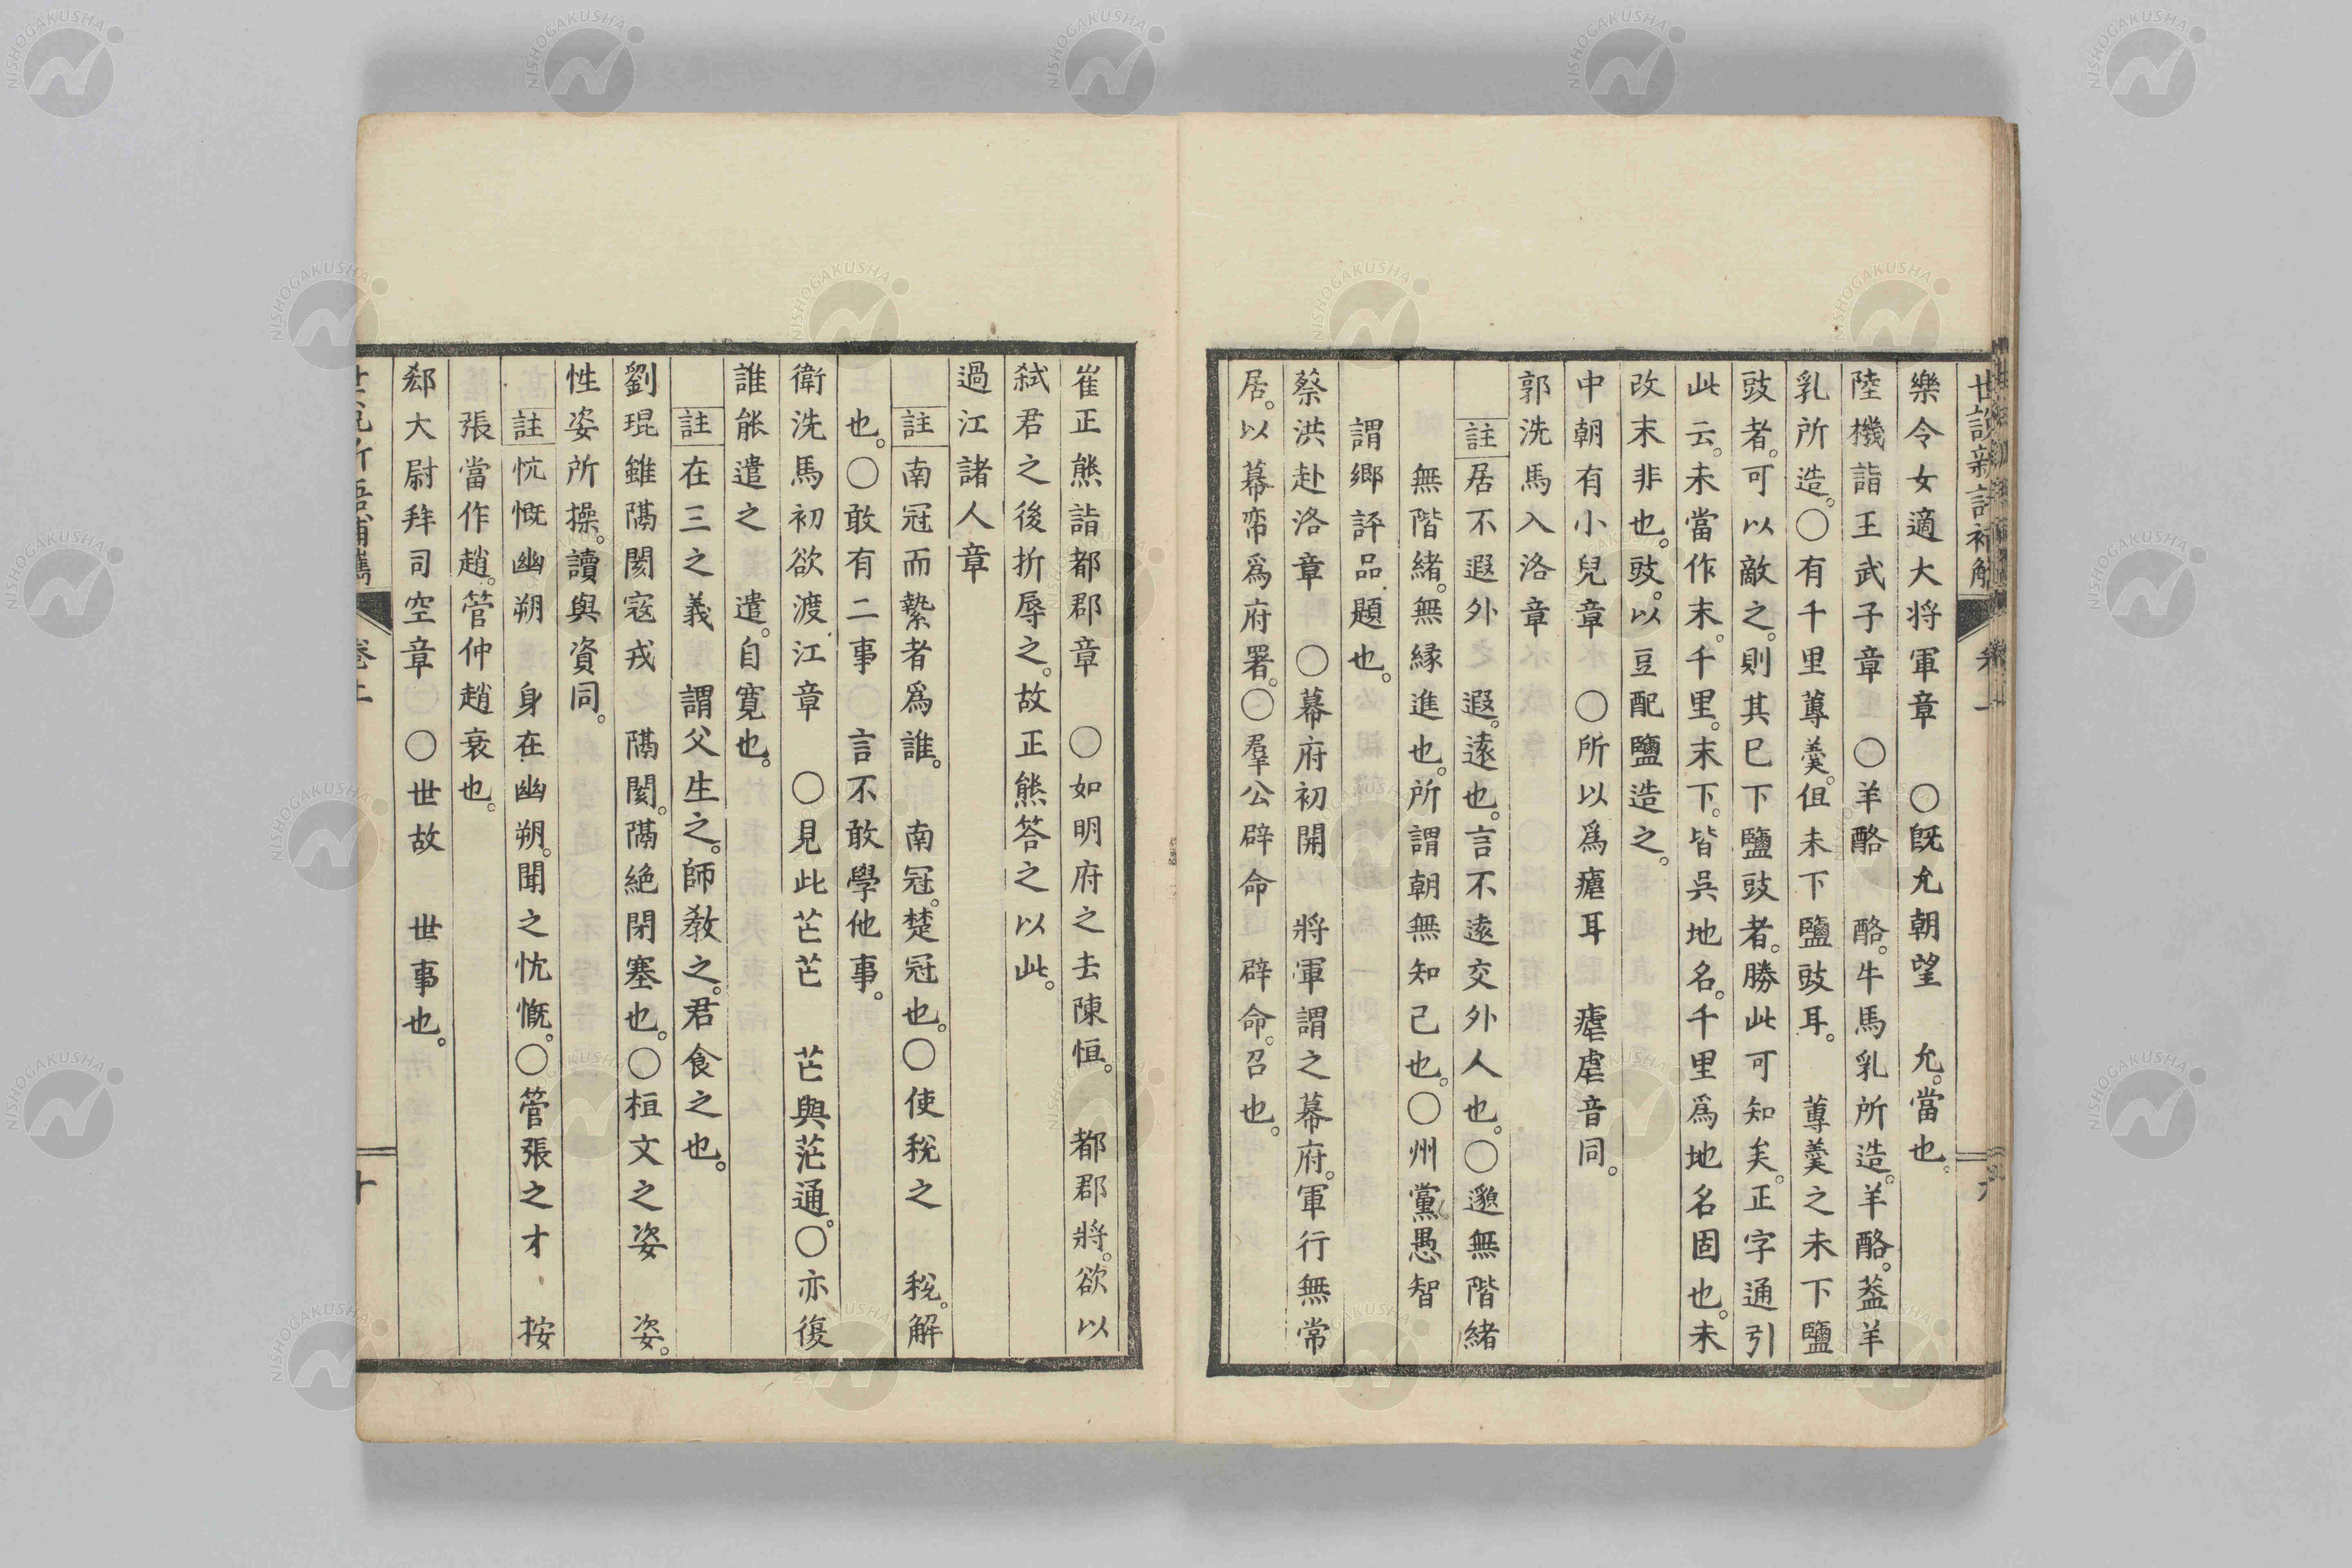 樂令女適大将軍章　○旣允朝望　允。當也。
陸機詣王武子章　○羊酪　酪。牛馬乳所造。羊酪。葢羊
乳所造。○有千里蓴羹。但未下鹽豉耳。　蓴羹之未下鹽
豉者。可以敵之。則其已下鹽豉者。勝此可知矣。正字通引
此云。未當作末。千里。末下。皆吳地名。千里爲地名固也。未
改末非也。豉。以豆配鹽造之。
中朝有小兒章　○所以爲瘧耳　瘧虐音同。
郭洗馬入洛章
註居不遐外　遐。遠也。言不遠交外人也。○邈無階緒
無階緒。無緣進也。所謂朝無知己也。○州黨愚智
謂鄉評品題也。
蔡洪赴洛章　○幕府初開　將軍謂之幕府。軍行無常
居。以幕帟爲府署。○羣公辟命　辟命。召也。
崔正熊詣都郡章　○如明府之去陳恒。　都郡將。欲以
弒君之後折辱之。故正熊答之以此。
過江諸人章
註南冠而縶者爲誰。　南冠。楚冠也。○使稅之　稅。解
也。○敢有二事　言不敢學他事。
衛洗馬初欲渡江章　○見此芒芒　芒與茫通。○亦復
誰能遣之　遣。自寬也。
註在三之義　謂父生之。師敎之。君食之也。
劉琨雖隔閡寇戎　隔閡。隔絶閉塞也。○桓文之姿　姿。
性姿所操。讀與資同。
註忼慨幽朔　身在幽朔。聞之忼慨。○管張之才　按
張當作趙。管仲趙衰也。
郄大尉拜司空章　○世故　世事也。
NISHOGAKUSHA